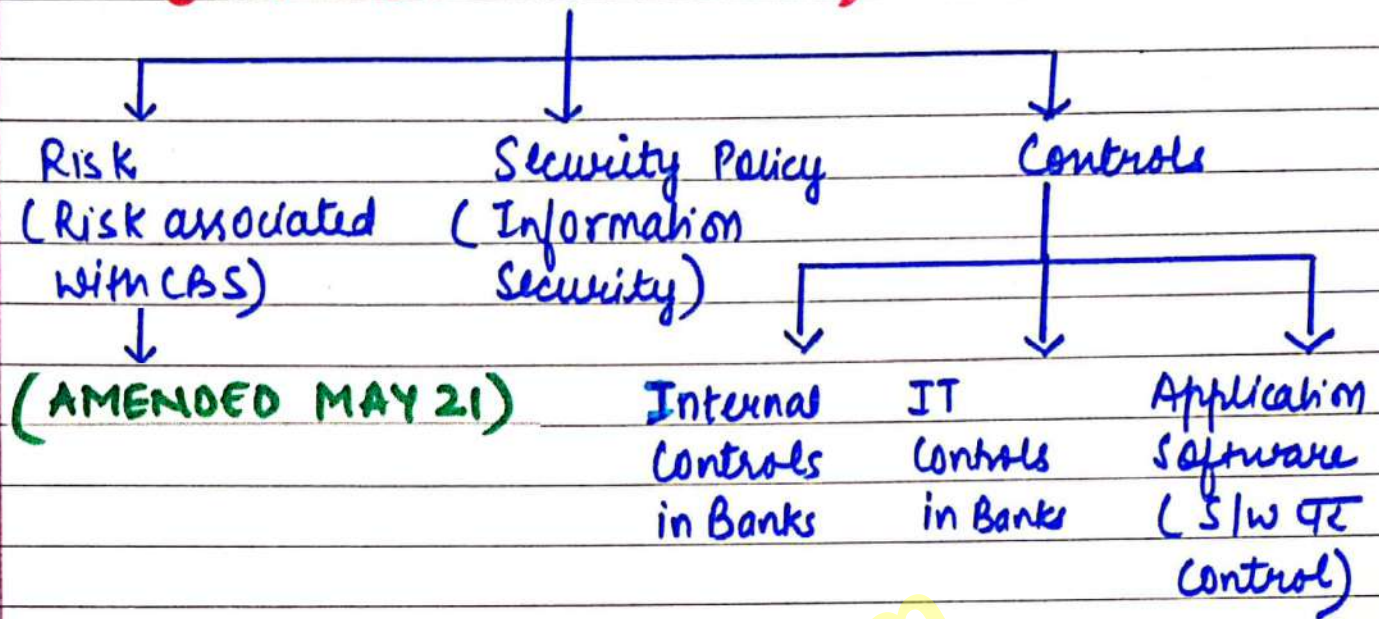 Risk
(Risk associated
with CBS)
(AMENDED MAY 21)
Security Policy
(Information
Security)
Controls
Internal
Controls
in Banks
IT
Controls
in Banks
Application
Software
(S/W पर
Control)